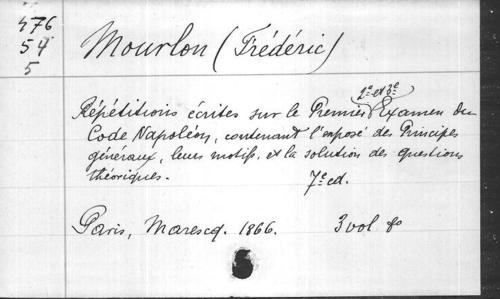 476
54
5
Mourlon (Frédéric)
2e et 3e
Répétitions écrites sur le Premier Examen du
Code Napoléon, contenant l'exposé des Principes
généraux, leurs motifs, et la solution des questions
théoriques. 7e ed.
Paris, Marescq. 1866. 3 vol